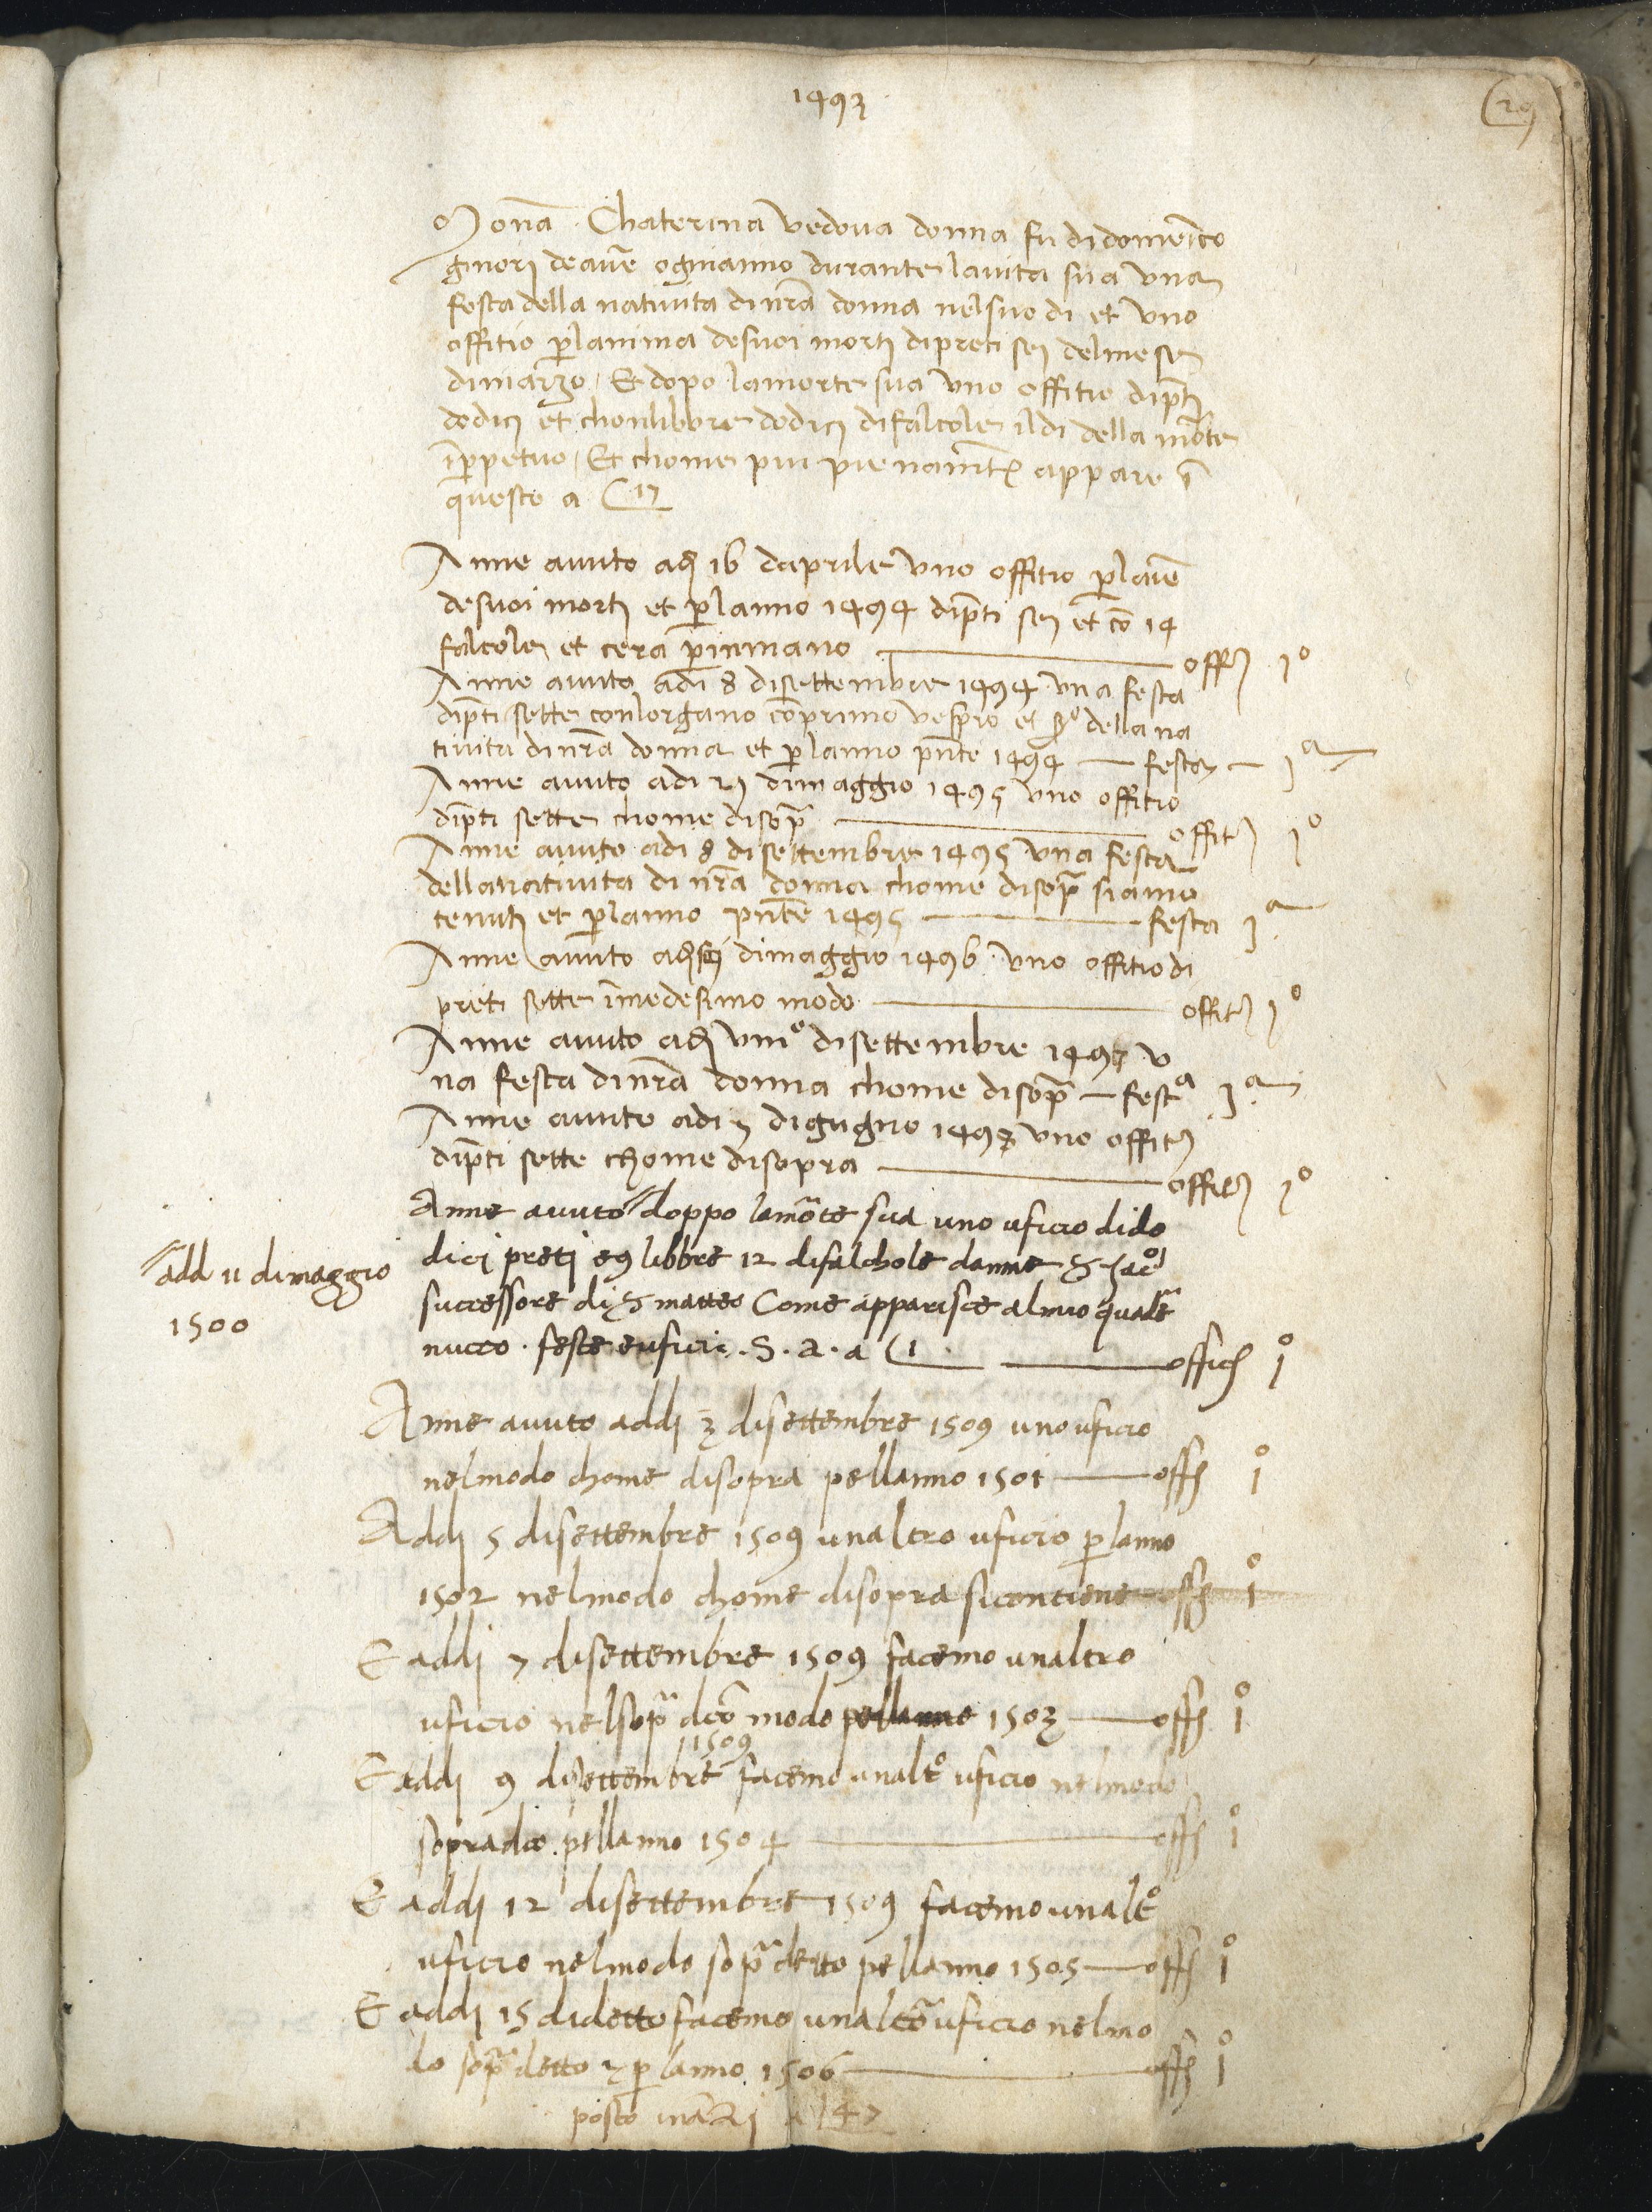 1493
29
Monã Chaterina vedova donna fu di domenico
ginori de avẽ ogni anno durante la vita sua una
festa della natiuita di nrã donna nel suo di et uno
offitio p lanima de suoi morti di preti sei del mese
di marzo Et dopo la morte sua uno offitio di pti
dodici et chon libbre dodici di falcole il di della morte
ĩ perpetuo Et chome piu pienamt appare ĩ
questo a C 17
Anne auuto adi 16 daprile uno offitio p
de suoi morti et p lanno 1494 di pti sei et cõ 14
falcole et cera p in mano — offi 1º
Anne auuto adi 8 di settembre 1494 una festa
di pti sette con lorgano cõ primo vespro et 2º della na
tiuita di nrã donna et p lanno pnte 1494 — festa — 1ª
Anne auuto adi di maggio 1495 uno offitio
di pti sette chome disopª — offiti 1º
Anne auuto adi 8 di settembre 1495 una festa
della natiuita di nrã donna chome disopª siamo
tenuti et p lanno pnte 1495 — festa 1ª
Anne auuto adi sei di maggio 1496 uno offitio di
preti sette ĩ medesimo modo — offiti 1º
Anne auuto adi viiiº di settembre 1497 u
na festa di nrã donna chome disopª — festª 1ª
Anne auuto adi 7 di giugno 1497 uno offiti
di pti sette chome disopra — offiti 1º
Anne auuto doppo la morte sua uno uficio di do
add 11 di maggio
1500
dici preti e libbre 12 di falchole danne S Jacº
successore di S matteo Come apparisce al mio
nuovo feste e ufici . S . a . a C 1 — offici 1º
Anne auuto addi 3 di settembre 1509 uno uficio
nel modo chome disopra pellanno 1501 — offi 1º
Addi 5 di settembre 1509 unaltro uficio p lanno
1502 nel modo chome disopra si contiene — offi 1º
E addi 7 di settembre 1509 facemo unaltro
uficio nel sopª dcõ modo pellanno 1503 — offi 1º
1509
E addi 9 di settembre facemo unaltº uficio nel modo
sopradco pellanno 1504 — offi 1º
E addi 12 di settembre 1509 facemo unaltº
uficio nel modo sopª detto pellanno 1505 — offi 1º
E addi 15 di detto facemo unaltrº uficio nel mo
do sopª detto p lanno 1506 — offi 1º
posto inãzi a 47